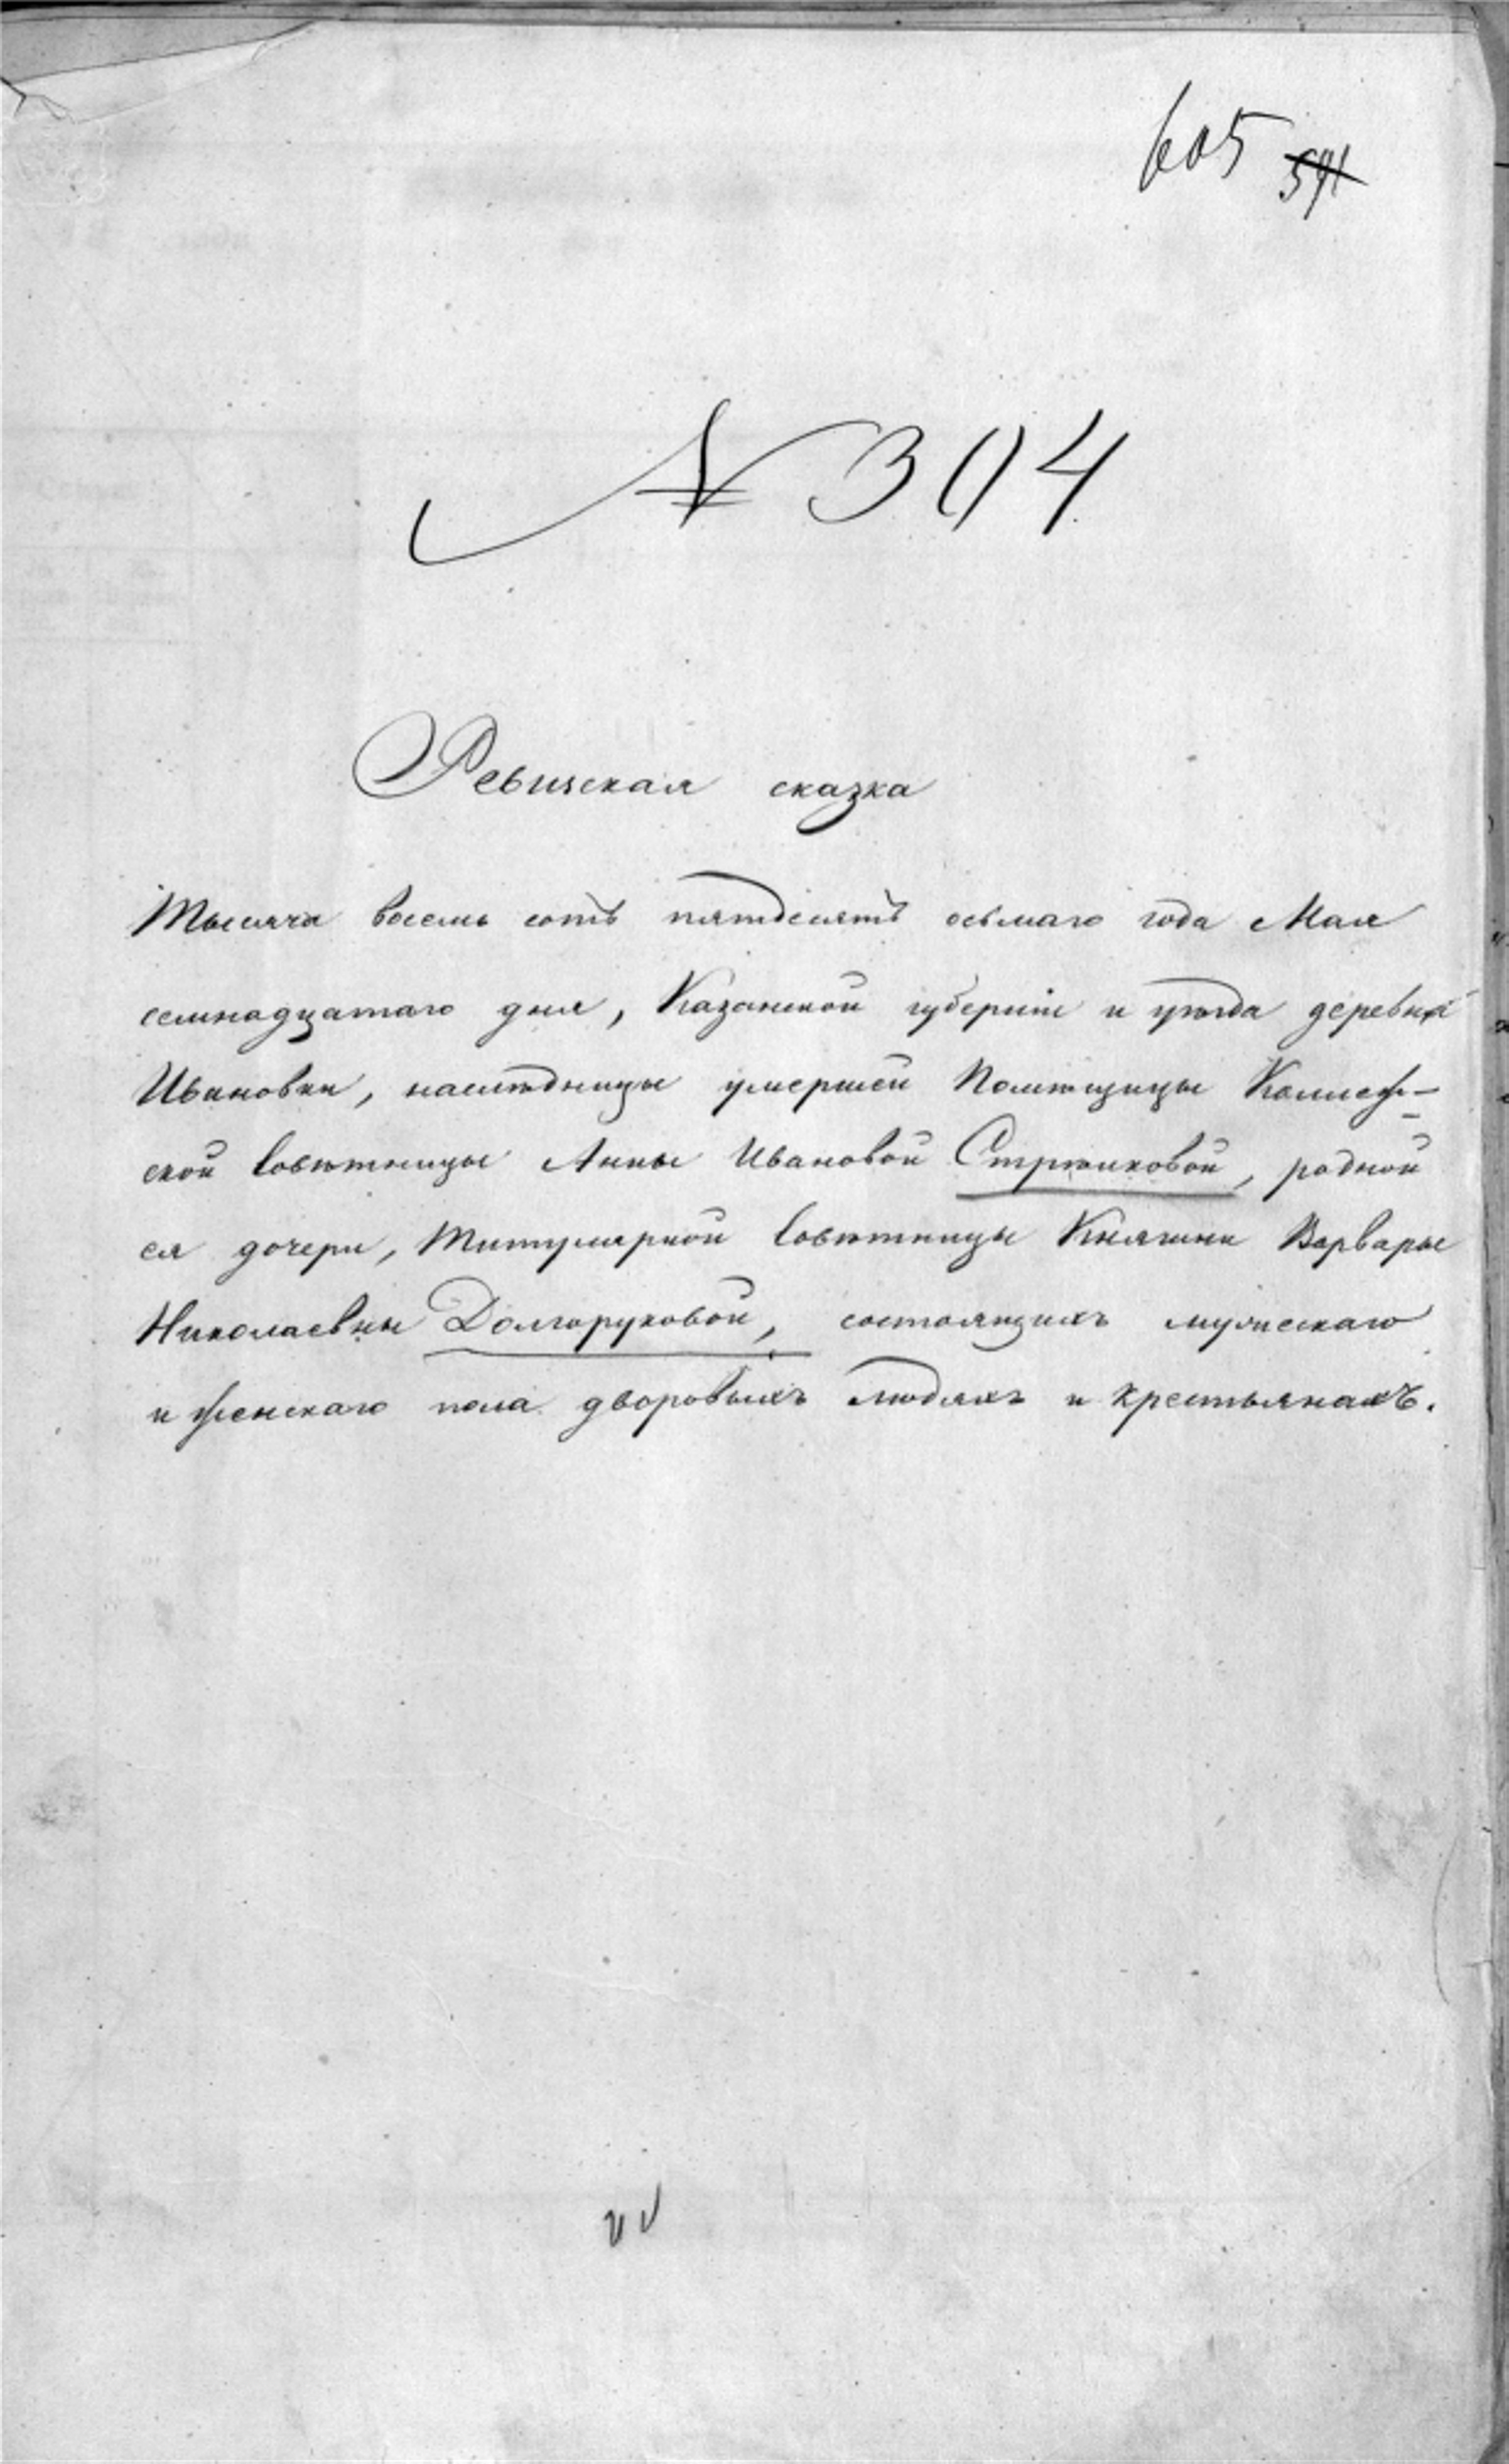 605 591
№ 304
Ревизская сказка
Тысяча восемь сотъ пятдесятъ осьмаго года Мая
семнадцатаго дня, Казанской губерніи и уѣзда деревни
Ивановки, наслѣдницы умершей Помѣщицы Коллеж-
ской Совѣтницы Анны Ивановой Стрѣлковой, родной
ея дочери, Титулярной Совѣтницы Княгини Варвары
Николаевны Долгоруковой, состоящихъ мужескаго
и женскаго пола дворовыхъ людяхъ и крестьянахъ.